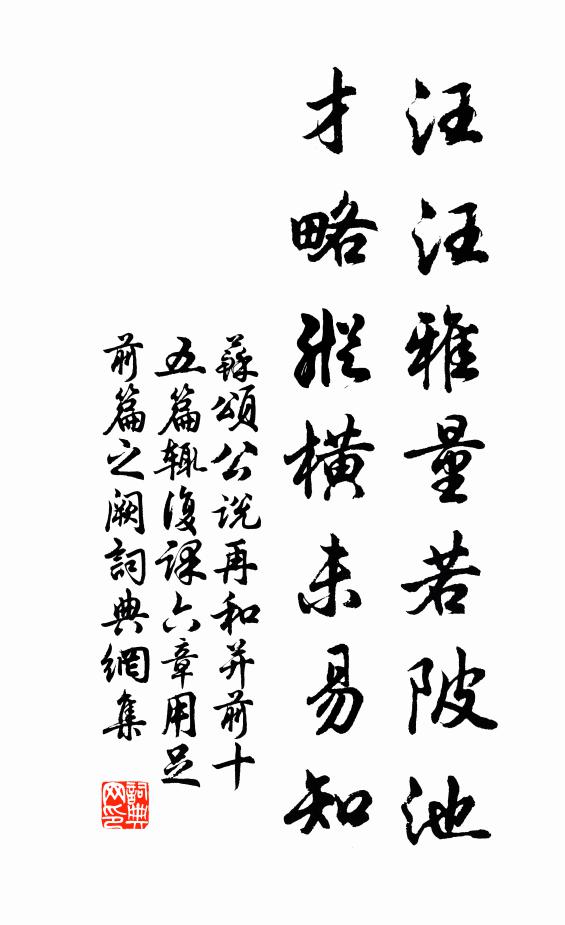 汪汪雅量若陂池
才略縱橫未易知
蘇頌公說再和并前十
五篇輙復課六章用足
前篇之阙詞典網集
詞典网印